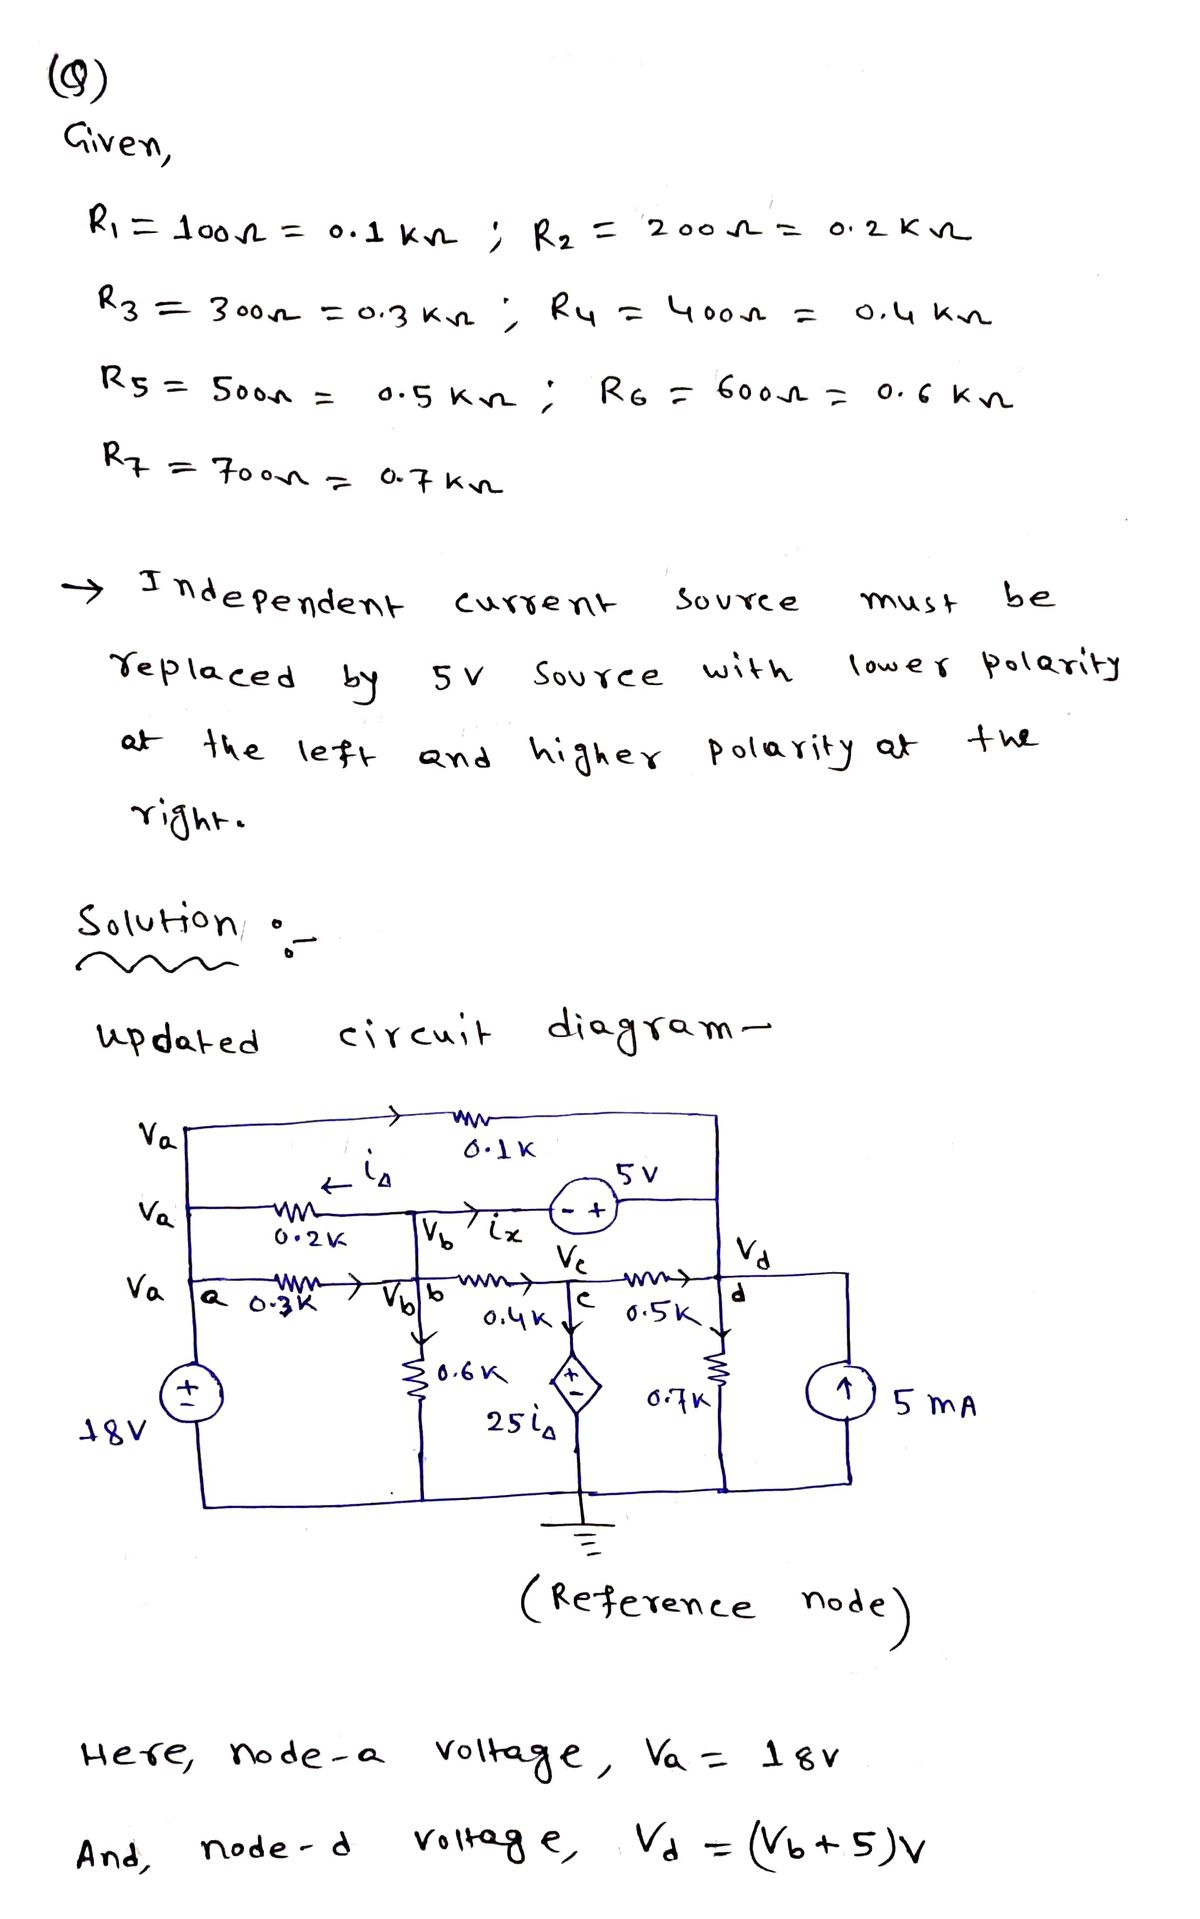 (Q)
Given,
R1 = 100Ω = 0.1 KΩ ; R2 = 200Ω = 0.2 KΩ
R3 = 300Ω = 0.3 KΩ ; R4 = 400Ω = 0.4 KΩ
R5 = 500Ω = 0.5 KΩ ; R6 = 600Ω = 0.6 KΩ
R7 = 700Ω = 0.7 KΩ
→ Independent current source must be
replaced by 5V source with lower polarity
at the left and higher polarity at the
right.
Solution :-
updated circuit diagram-
Va
0.1K
← iΔ
5V
Va
0.2K
Vb
ix
- +
Vc
Vd
Va
a
0.3K
Vb
b
0.4K
c
0.5K
d
+
-
18V
0.6K
+
-
25iΔ
0.7K
↑
5 mA
(Reference node)
Here, node-a voltage, Va = 18V
And, node-d voltage, Vd = (Vb+5)V